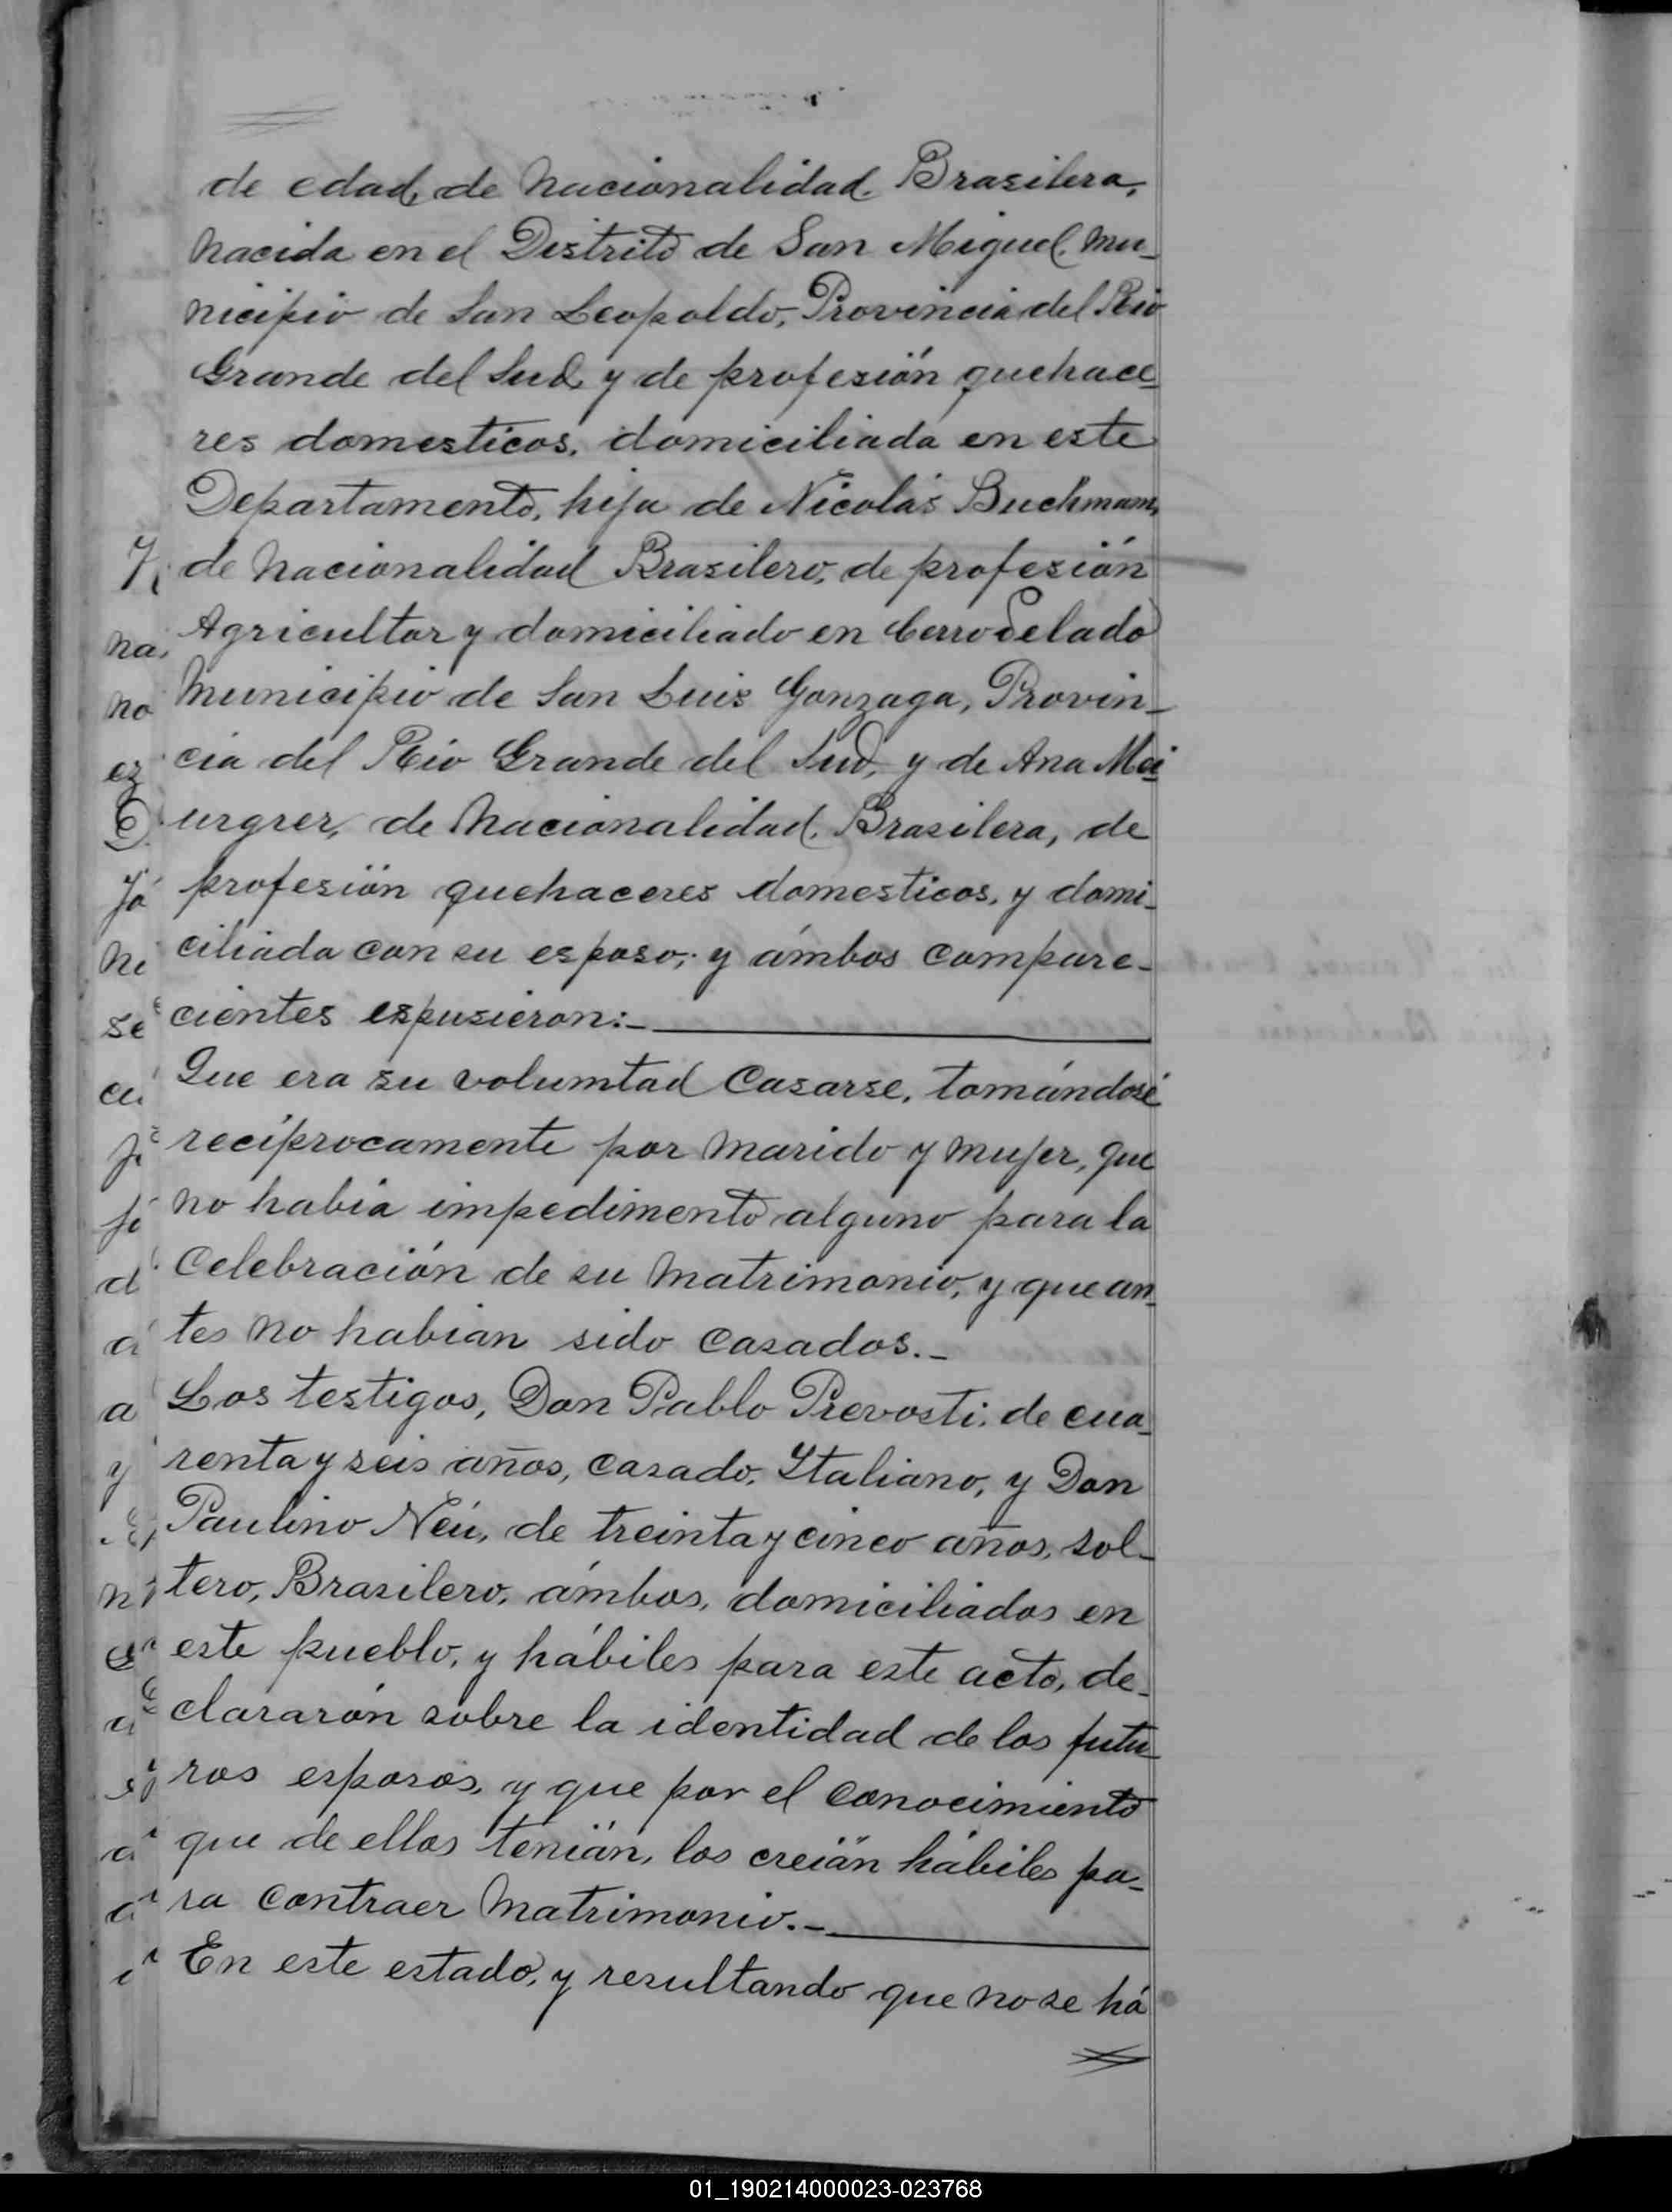 de edad, de nacionalidad Brasilera,
nacida en el Distrito de San Miguel, mu_
nicipio de San Leopoldo, Provincia del Rio
Grande del Sud, y de profesión quehace_
res domesticos, domiciliada en este
Departamento, hija de Nicolás Buchmam,
de nacionalidad Brasilero, de profesión
Agricultor y domiciliado en Cerro Pelado
municipio de San Luis Gonzaga, Provin_
cia del Rio Grande del Sud, y de Ana Mei
urgrer, de nacionalidad Brasilera, de
profesión quehaceres domesticos, y domi_
ciliada con su esposo; y ámbos compare_
cientes espusieron:_
Que era su volumtad Casarse, tomándosé
recíprocamente por marido y mujer, que
no había impedimento alguno para la
Celebración de su matrimonio, y que an_
tes no habian sido Casados._
Los testigos, Don Pablo Prevosti, de cua_
renta y seis años, Casado, Italiano, y Don
Paulino Neú, de treinta y cinco años, sol_
tero, Brasilero, ámbos, domiciliados en
este pueblo, y hábiles para este acto, de_
clararón sobre la identidad de los futu_
ros esposos, y que por el Conocimiento
que de ellos tenián, los creián hábiles pa_
ra Contraer Matrimonio._
En este estado, y resultando que no se há
01_190214000023-023768